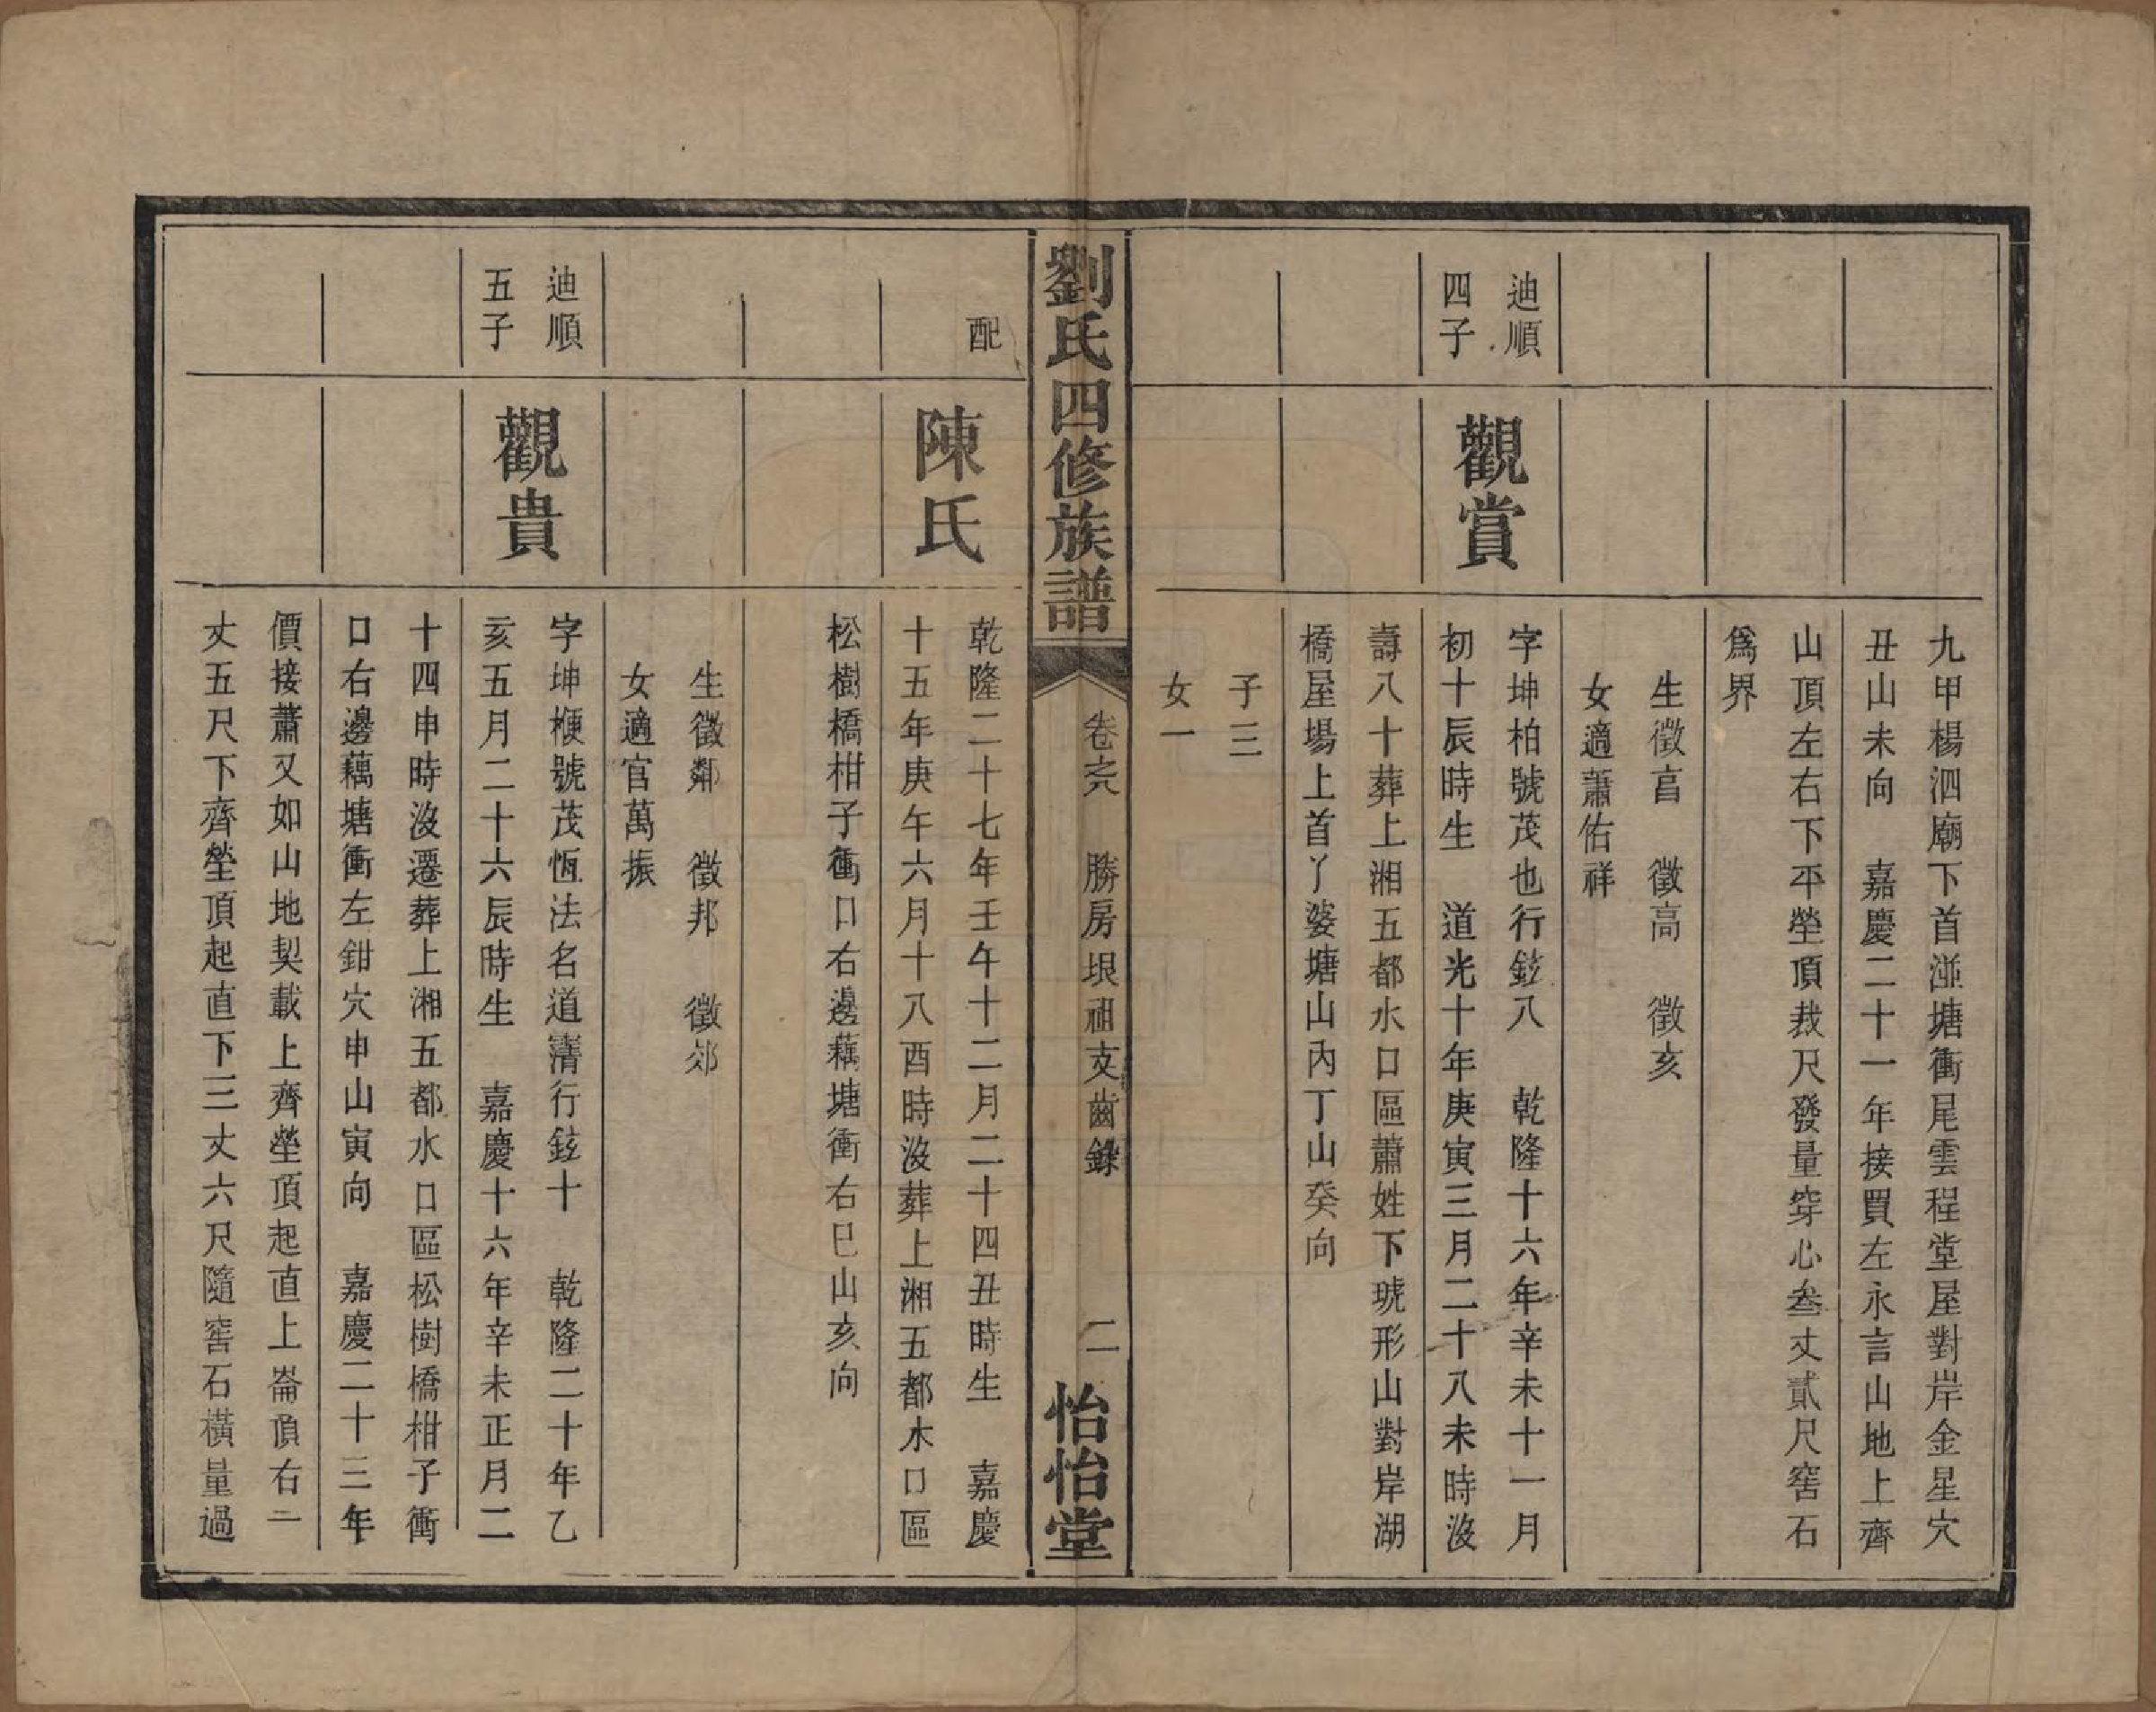 九甲楊泗廟下首溰塘衝尾雲程堂屋對岸金星穴
丑山未向　嘉慶二十一年接買左永言山地上齊
山頂左右下平塋頂裁尺發量穿心叁丈貳尺窖石
爲界
生徵亯　徵高　徵亥
女適蕭佑祥
迪順
四子
觀賞
字坤柏號茂也行鉉八　乾隆十六年辛未十一月
初十辰時生　道光十年庚寅三月二十八未時沒
壽八十葬上湘五都水口區蕭姓下琥形山對岸湖
橋屋場上首丫婆塘山內丁山癸向
子三
女一
劉氏四修族譜
卷之八　勝房垠祖支齒錄　二
怡怡堂
配
陳氏
乾隆二十七年壬午十二月二十四丑時生　嘉慶
十五年庚午六月十八酉時沒葬上湘五都水口區
松樹橋柑子衝口右邊藕塘衝右巳山亥向
生徵鄰　徵邦　徵郊
女適官萬振
迪順
五子
觀貴
字坤梗號茂恆法名道清行鉉十　乾隆二十年乙
亥五月二十六辰時生　嘉慶十六年辛未正月二
十四申時沒遷葬上湘五都水口區松樹橋柑子衝
口右邊藕塘衝左鉗穴申山寅向　嘉慶二十三年
價接蕭又如山地契載上齊塋頂起直上崙頂右一
丈五尺下齊塋頂起直下三丈六尺隨窖石橫量過